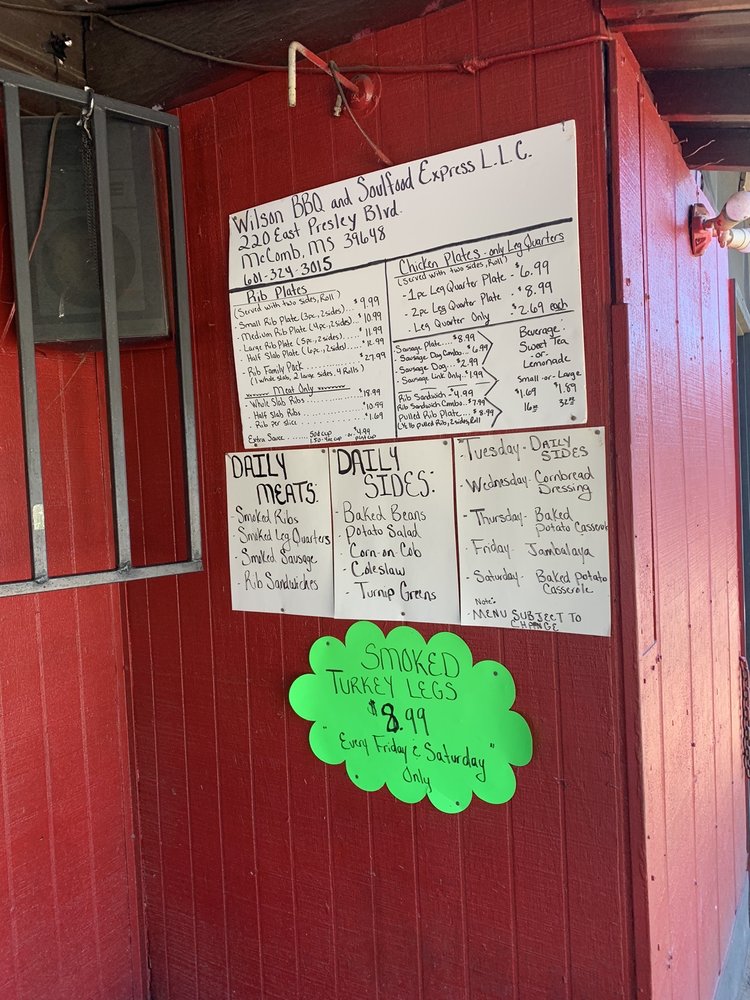 Wilson BBQ and Soulfood Express L.L.C.
220 East Presley Blvd.
McComb, MS 39648
601-324-3015
Rib Plates
(Served with two sides, Roll)
- Small Rib Plate (3pc, 2sides)... $9.99
- Medium Rib Plate (4pc, 2sides)... $10.99
- Large Rib Plate (5pc, 2sides)... 11.99
- Half Slab Plate (6pc, 2sides)... 12.99
- Rib Family Pack $27.99
(1 whole slab, 2 large sides, 4 Rolls)
Meat Only
- Whole Slab Ribs $18.99
- Half Slab Ribs $10.99
Rib per slice $1.69
Extra Sauce
Chicken Plates - only Leg Quarters
(Served with two sides, Roll)
- 1pc Leg Quarter Plate - $6.99
- 2pc Leg Quarter Plate - $8.99
- Leg Quarter Only - $2.69 each
- Sausage Plate... $8.99
- Sausage Dog Combo.. $6.99
- Sausage Dog... $2.99
- Sausage Link Only.. $1.99
Rib Sandwich - $4.99
Rib Sandwich Combo.. $7.99
Pulled Rib Plate... $8.99
(1/2 lb pulled Rib, 2sides, Roll
Beverage:
Sweet Tea
-or-
Lemonade
Small -or- Large
$1.69 $1.89
16oz 32oz
DAILY
MEATS:
- Smoked Ribs
- Smoked Leg Quarters
- Smoked Sausage
- Rib Sandwiches
DAILY
SIDES:
- Baked Beans
- Potato Salad
- Corn-on Cob
- Coleslaw
- Turnip Greens
- Tuesday - DAILY
SIDES
- Wednesday - Cornbread
Dressing
- Thursday - Baked
Potato Casserole
- Friday - Jambalaya
- Saturday - Baked Potato
Casserole
Note:
- MENU SUBJECT TO
CHANGE
SMOKED
TURKEY LEGS
$8.99
"Every Friday & Saturday"
Only